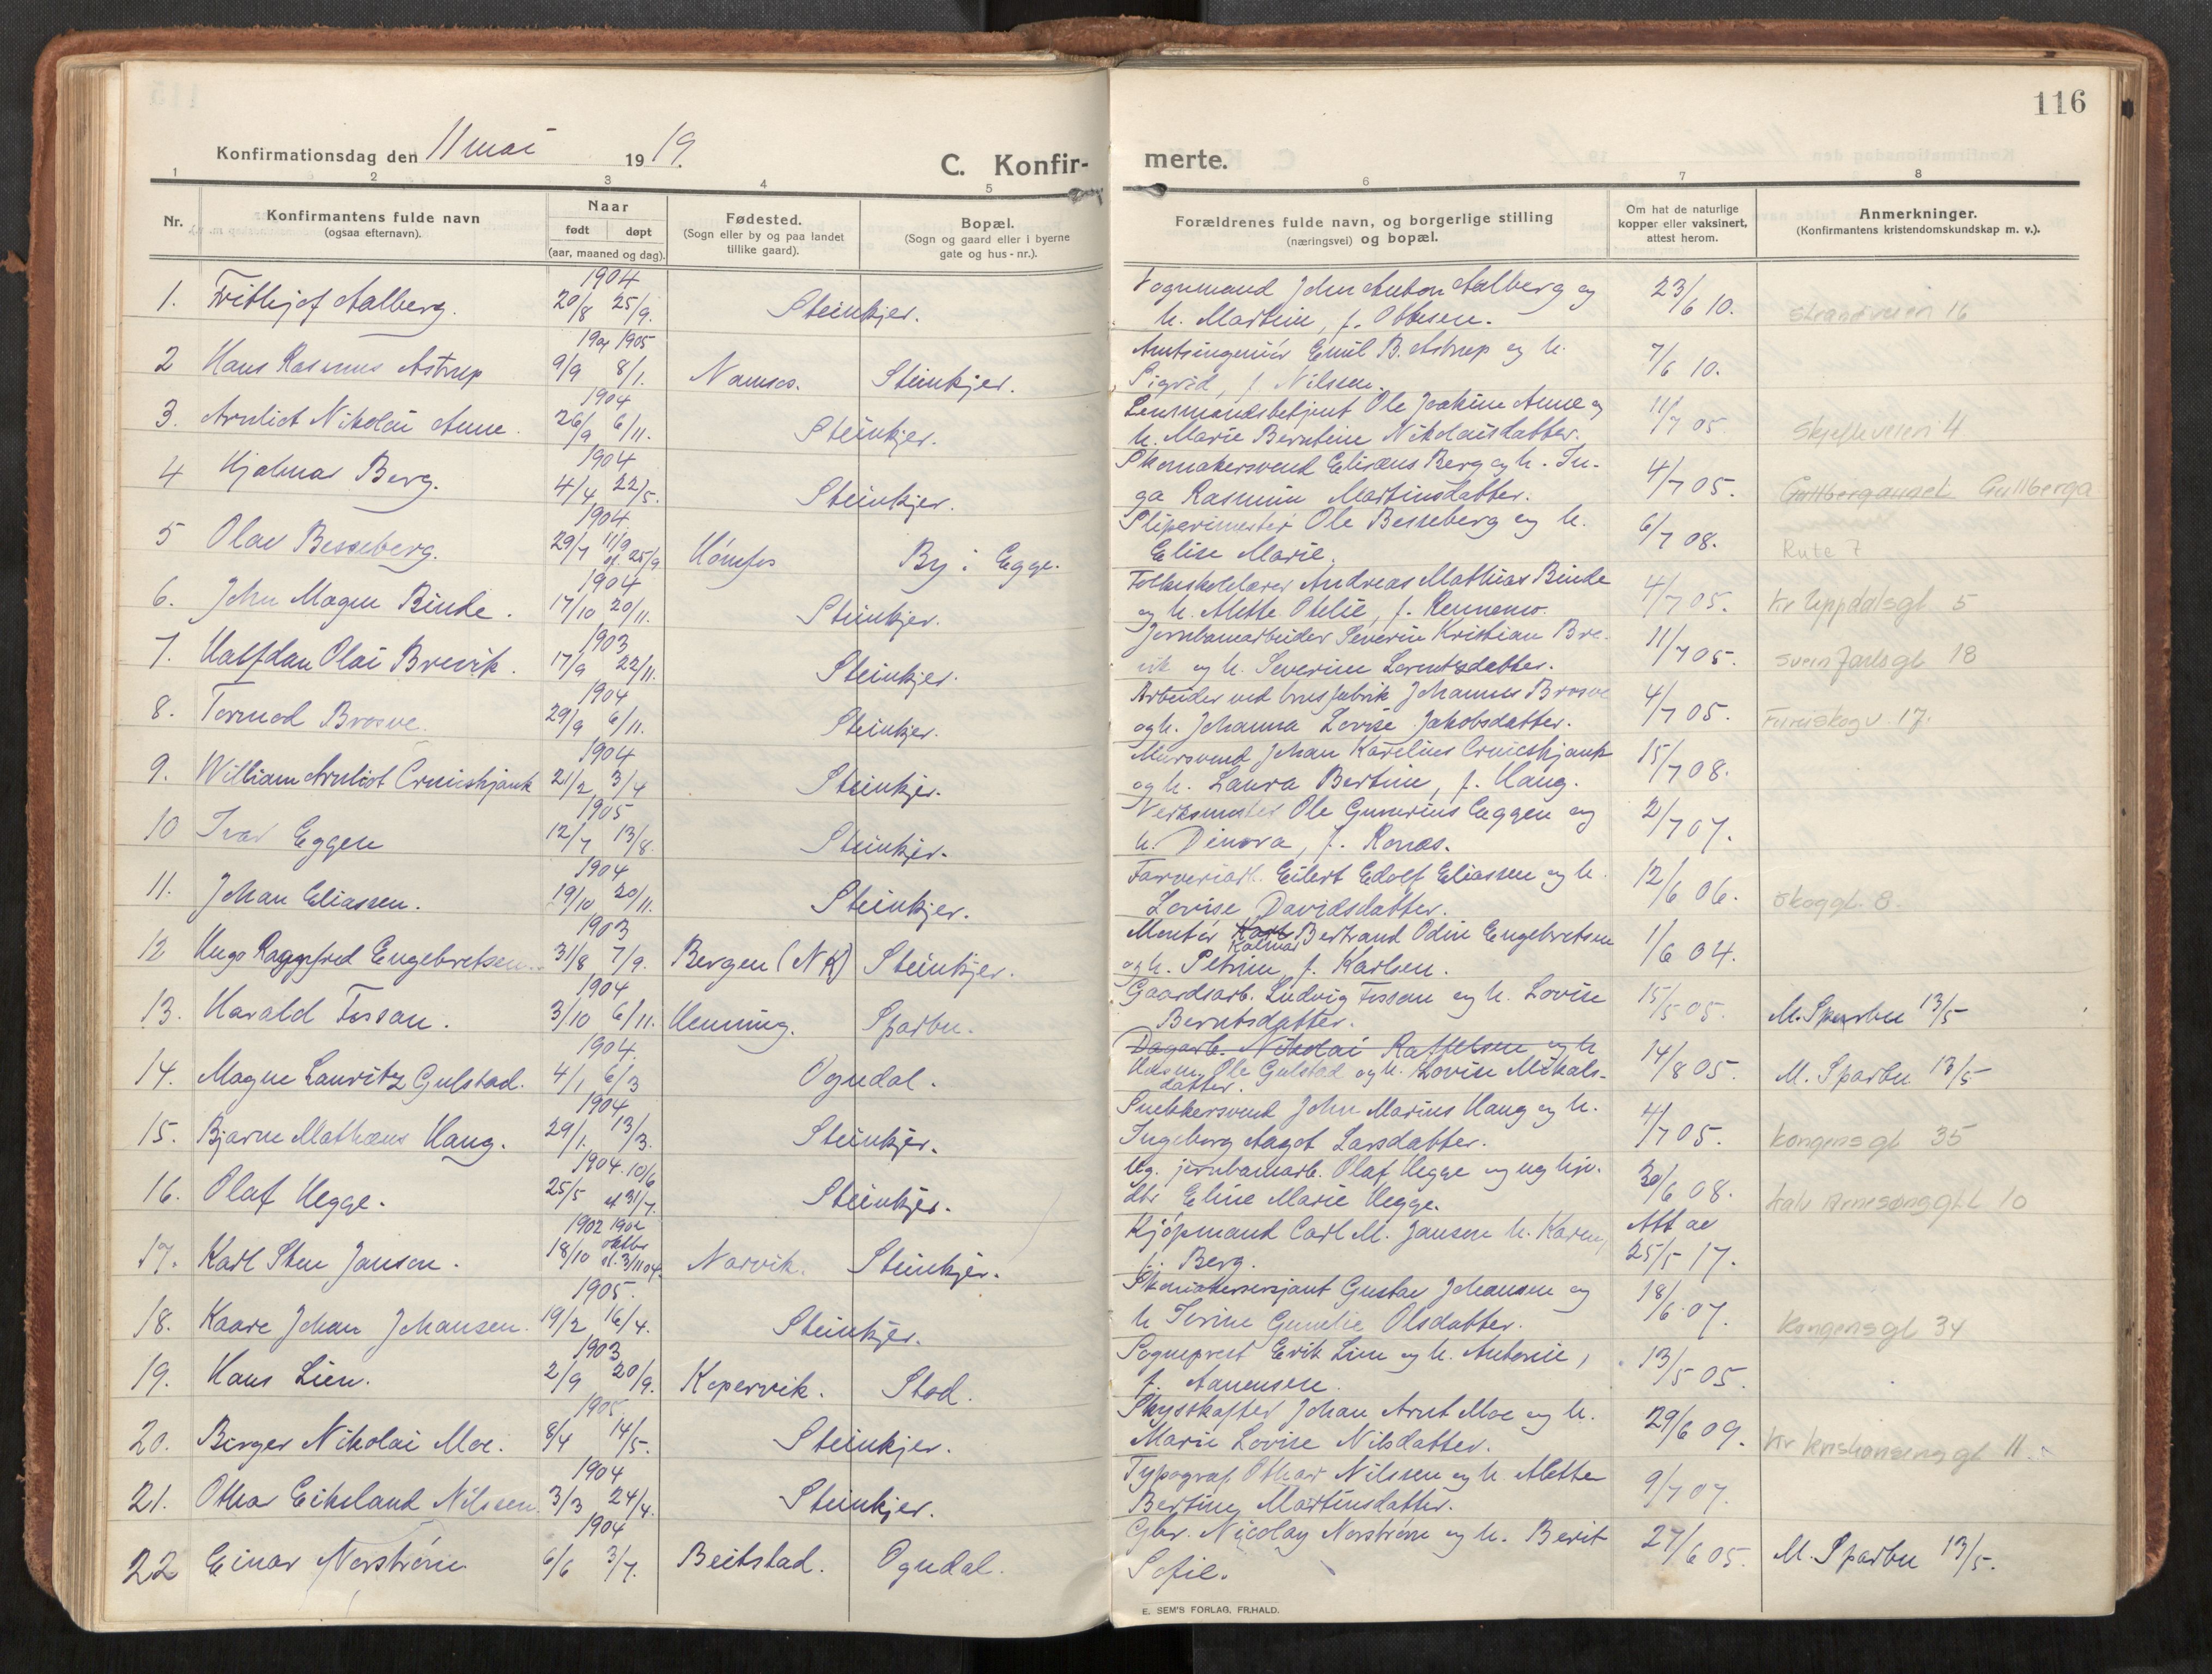 116
Konfirmationsdag den 11 mai 1919.
C. Konfir-
merte.
1 2 3 4 5 6 7 8
Nr.
Konfirmantens fulde navn
(ogsaa efternavn).
Naar
født døpt
(aar, maaned og dag).
Fødested.
(Sogn eller by og paa landet
tillike gaard).
Bopæl.
(Sogn og gaard eller i byerne
gate og hus-nr.).
Forældrenes fulde navn, og borgerlige stilling
(næringsvei) og bopæl.
Om hat de naturlige
kopper eller vaksinert,
attest herom.
Anmerkninger.
(Konfirmantens kristendomskundskap m. v.).
1904
1. Frithjof Aalberg. 20/8 25/9. Steinkjer.
Vognmand John Anton Aalberg og
h. Martine, f. Ottesen. 23/6 10. Strandveien 16
1904 1905
2 Hans Rasmus Astrup 9/9 8/1. Namsos. Steinkjer.
Amtsingeniør Emil B. Astrup og h.
Sigrid, f. Nilssen. 7/6 10.
1904
3. Arnliot Nikolai Aune. 26/9 6/11. Steinkjer.
Lensmandsbetjent Ole Joakim Aune og
h. Marie Berntine Nikolaisdatter. 11/7 05 Skjefteveien 4
1904
4 Hjalmar Berg. 4/4 22/5. Steinkjer.
Skomakersvend Elisæus Berg og h. In-
ga Rasmine Martinsdatter. 4/7 05. Gullberga
1904.
5 Olav Besseberg. 29/7 11/9 st. 25/9 Hønefos By i Egge.
Sliperimester Ole Besseberg og h.
Elise Marie. 6/7 08. Rute 7
1904
6. John Magne Binde. 17/10 20/11. Steinkjer.
Folkeskolelærer Andreas Mathias Binde
og h. Alette Otelie, f. Rennemo. 4/7 05. Kr Uppdalsgt 5
1903
7. Halfdan Olai Brevik. 17/9 22/11. Steinkjer.
Jernbanearbeider Severin Kristian Bre-
vik og h. Severine Lorentsdatter. 11/7 05. Svein Jarlsgt 18
1904
8. Tormod Brosve. 29/9 6/11. Steinkjer.
Arbeider ved brusfabrik Johannes Brosve
og h. Johanna Lovise Jakobsdatter. 4/7 05. Furuskogv. 17.
1904
9. William Arnliot Cruicshjank 21/2 3/4 Steinkjer.
Mursvend Johan Karelius Cruicshjank
og h. Laura Bertine, f. Haug. 15/7 08.
1905
10 Ivar Eggen 12/7 13/8. Steinkjer.
Verksmester Ole Gunerius Eggen og
h. Dinora, f. Ronæs. 2/7 07.
1904
11. Johan Eliassen. 19/10 20/11. Steinkjer.
Farveriarb. Eilert Edolf Eliassen og h.
Lovise Davidsdatter. 12/6 06. Skoggt. 8.
1903
12 Hugo Ragnfred Engebretsen. 31/8 7/9. Bergen (NK) Steinkjer.
Montør Karl Bertrand Odin Engebretsen
Kalmar
og h. Petrine, f. Karlsen. 1/6 04.
1904
13. Harald Fossan. 3/10 6/11. Henning. Sparbu.
Gaardsarb. Ludvig Fossan og h. Lovise
Berntsdatter. 15/5 05. M. Sparbu 13/5
1904.
14. Magne Lauritz Gulstad. 4/1 6/3 Ogndal.
Dagarb. Nikolai Raffelsen og h
Husm. Ole Gulstad og h. Lovise Mikals-
datter. 14/8 05. M. Sparbu 13/5
1904
15. Bjarne Mathæus Haug. 29/1. 13/3. Steinkjer.
Snekkersvend John Marius Haug og h.
Ingeborg Aagot Larsdatter. 4/7 05. Kongensgt 35
1904. 10/6
16. Olaf Hegge. 25/5 st 31/7. Steinkjer.
Ug. jernbanearb. Olaf Hegge og ug tjen.
dtr Eline Marie Hegge. 30/6 08. 10
1902 1902
17. Karl Sten Jansen. 18/10 oktbr st. 3/11 04. Narvik. Steinkjer.
Kjøpmand Carl M. Jansen h. Karen,
f. Berg. Att av 25/5 17.
1905.
18. Kaare Johan Johansen. 19/2 16/4. Steinkjer.
Skomakersersjant Gustav Johansen og
h Serine Gunelie Olsdatter. 18/6 07. Kongensgt 34
1903
19. Hans Lien. 2/9 20/9. Kopervik. Stod.
Sogneprest Erik Lien og h. Antonie,
f. Aanensen. 13/5 05.
1905
20. Birger Nikolai Moe. 8/4 14/5. Steinkjer.
Skysskaffer Johan Arnt Moe og h.
Marie Lovise Nilsdatter. 29/6 09. Kr Kristiansensgt 11
1904
21. Othar Eikeland Nilssen 3/3 24/4. Steinkjer.
Typograf Othar Nilssen og h. Alette
Bertine Martinsdatter. 9/7 07.
1904
22 Einar Norstrøm 6/6 3/7. Beitstad. Ogndal.
Gbr. Nicolay Norstrøm og h. Berit
Sofie. 27/6 05. M. Sparbu 13/5.
E. SEM'S FORLAG, FR.HALD.